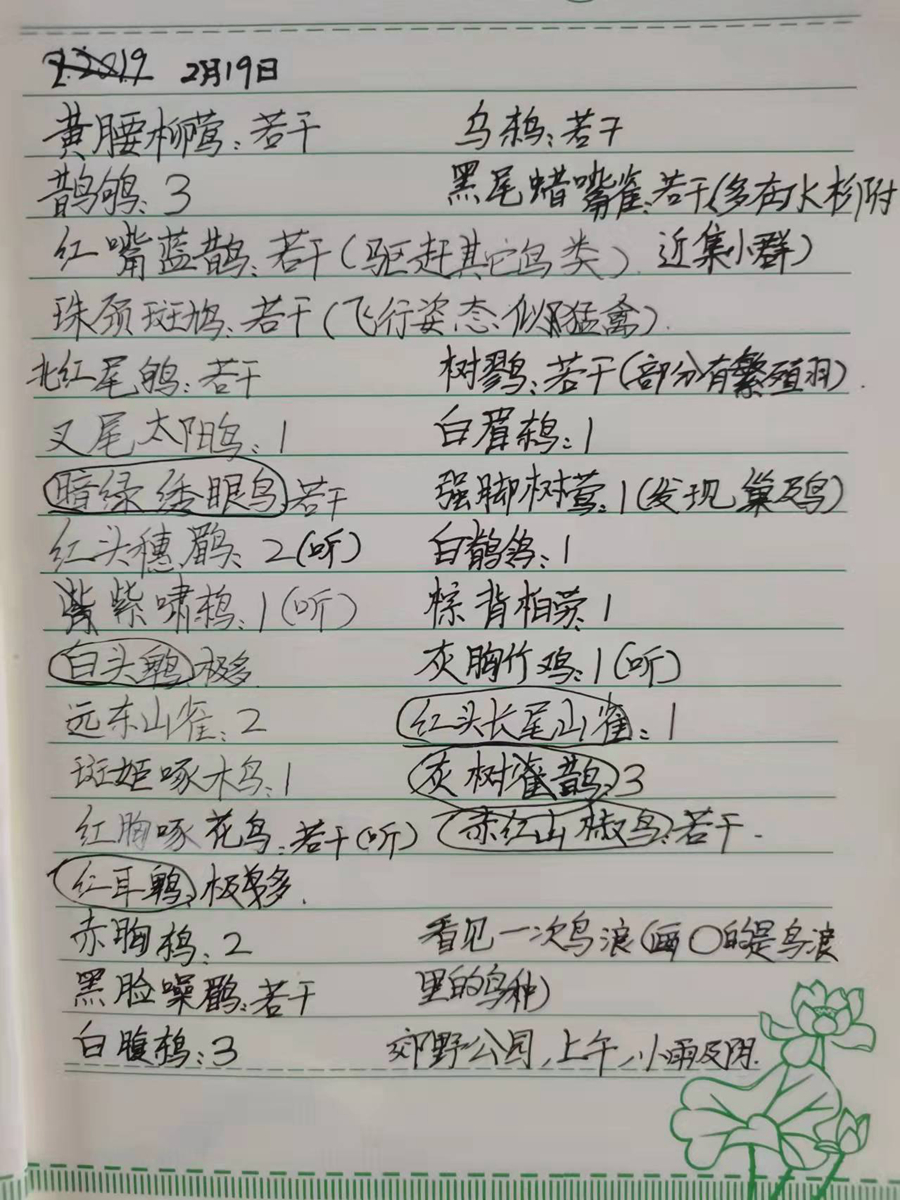 2月19日
黄腰柳莺：若干 乌鸫：若干
鹊鸲：3 黑尾蜡嘴雀：若干（多在水杉附
红嘴蓝鹊：若干（驱赶其它鸟类） 近集小群）
珠颈斑鸠：若干（飞行姿态似猛禽）
北红尾鸲：若干 树鹨：若干（部分有繁殖羽）.
叉尾太阳鸟：1 白眉鸫：1
暗绿绣眼鸟：若干 强脚树莺：1（发现巢及鸟）
红头穗鹛：2（听） 白鹡鸰：1
紫啸鸫：1（听） 棕背伯劳：1
白头鹎：极多 灰胸竹鸡：1（听）
远东山雀：2 红头长尾山雀：1
斑姬啄木鸟：1 灰树鹊：3
红胸啄花鸟：若干（听） 赤红山椒鸟：若干.
红耳鹎：极多.
赤胸鸫：2 看见一次鸟浪（画〇的是鸟浪
黑脸噪鹛：若干 里的鸟种）
白腹鸫：3 郊野公园，上午，小雨及阴.